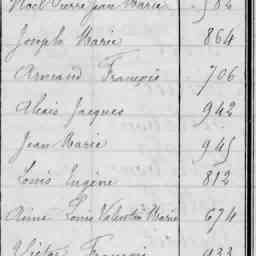 Noël Pierre Jean Marie 582
Joseph Marie 864
Armand François 706
Alexis Jacques 942
Jean Marie 945
Louis Eugène 812
Aimé Louis Valentin Marie 674
Victor François 933